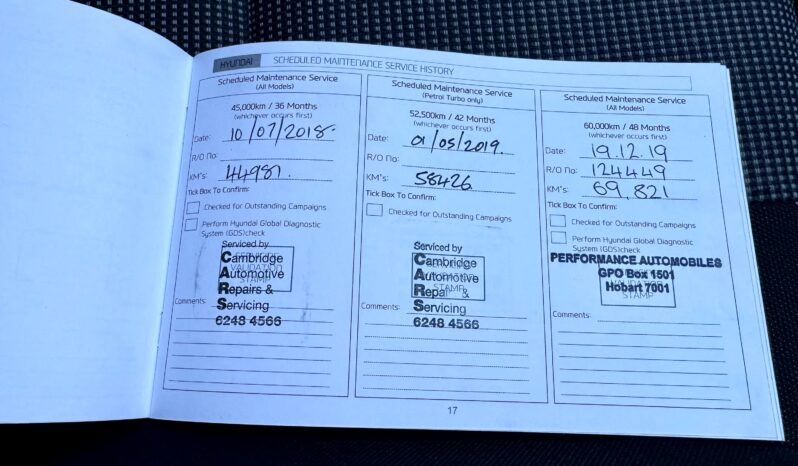 HYUNDAI SCHEDULED MAINTENANCE SERVICE HISTORY
Scheduled Maintenance Service
(All Models)
45,000km / 36 Months
(whichever occurs first)
Date: 10/07/2018
R/O No:
KM's: 44987.
Tick Box To Confirm:
Checked for Outstanding Campaigns
Perform Hyundai Global Diagnostic
System (GDS)check
Serviced by
Cambridge
Automotive
Repairs &
Servicing
6248 4566
VALIDATION
STAMP
Comments:
Scheduled Maintenance Service
(Petrol Turbo only)
52,500km / 42 Months
(whichever occurs first)
Date: 01/05/2019.
R/O No:
KM's: 58426
Tick Box To Confirm:
Checked for Outstanding Campaigns
Serviced by
Cambridge
Automotive
Repai &
Servicing
6248 4566
STAMP
Comments:
Scheduled Maintenance Service
(All Models)
60,000km / 48 Months
(whichever occurs first)
Date: 19.12.19
R/O No: 124449
KM's: 69,821
Tick Box To Confirm:
Checked for Outstanding Campaigns
Perform Hyundai Global Diagnostic
System (GDS)check
PERFORMANCE AUTOMOBILES
GPO Box 1501
Hobart 7001
STAMP
Comments:
17